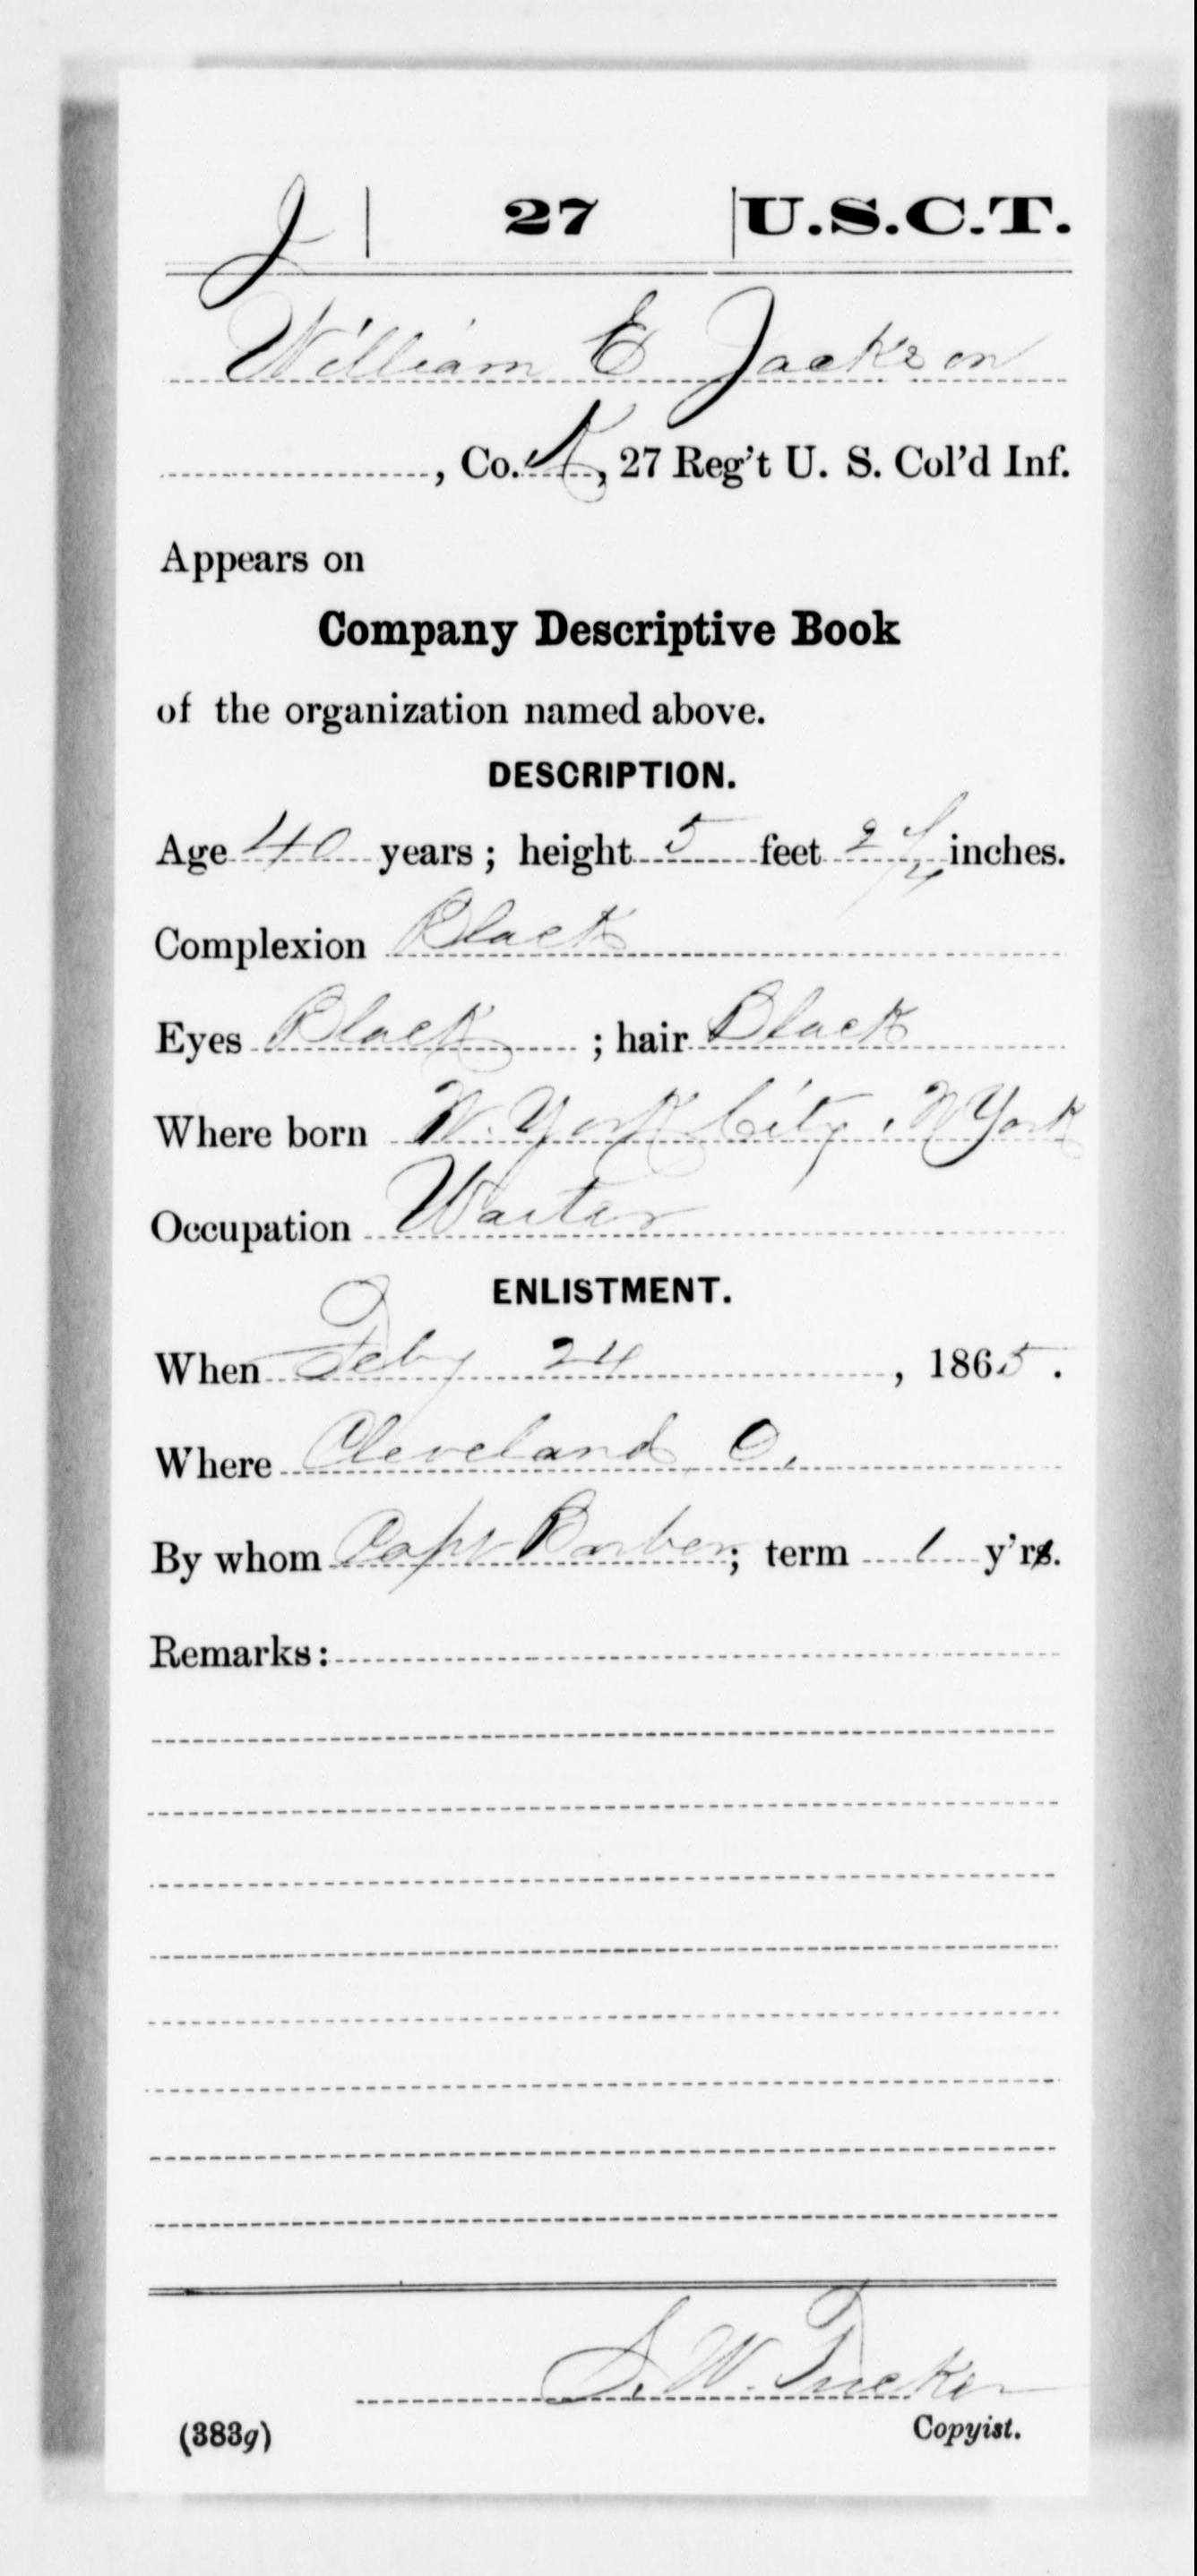 J | 27 | U.S.C.T.
William E Jackson
, Co. K, 27 Reg't U. S. Col'd Inf.
Appears on
Company Descriptive Book
of the organization named above.
DESCRIPTION.
Age 40 years; height 5 feet 2 1/4 inches.
Complexion Black
Eyes Black ; hair Black
Where born N. York City, N York
Occupation Waiter
ENLISTMENT.
When Feby 24, 1865.
Where Cleveland, O.
By whom Capt Barber; term 1 y'rs.
Remarks:
S. W. Tucker
Copyist.
(383g)